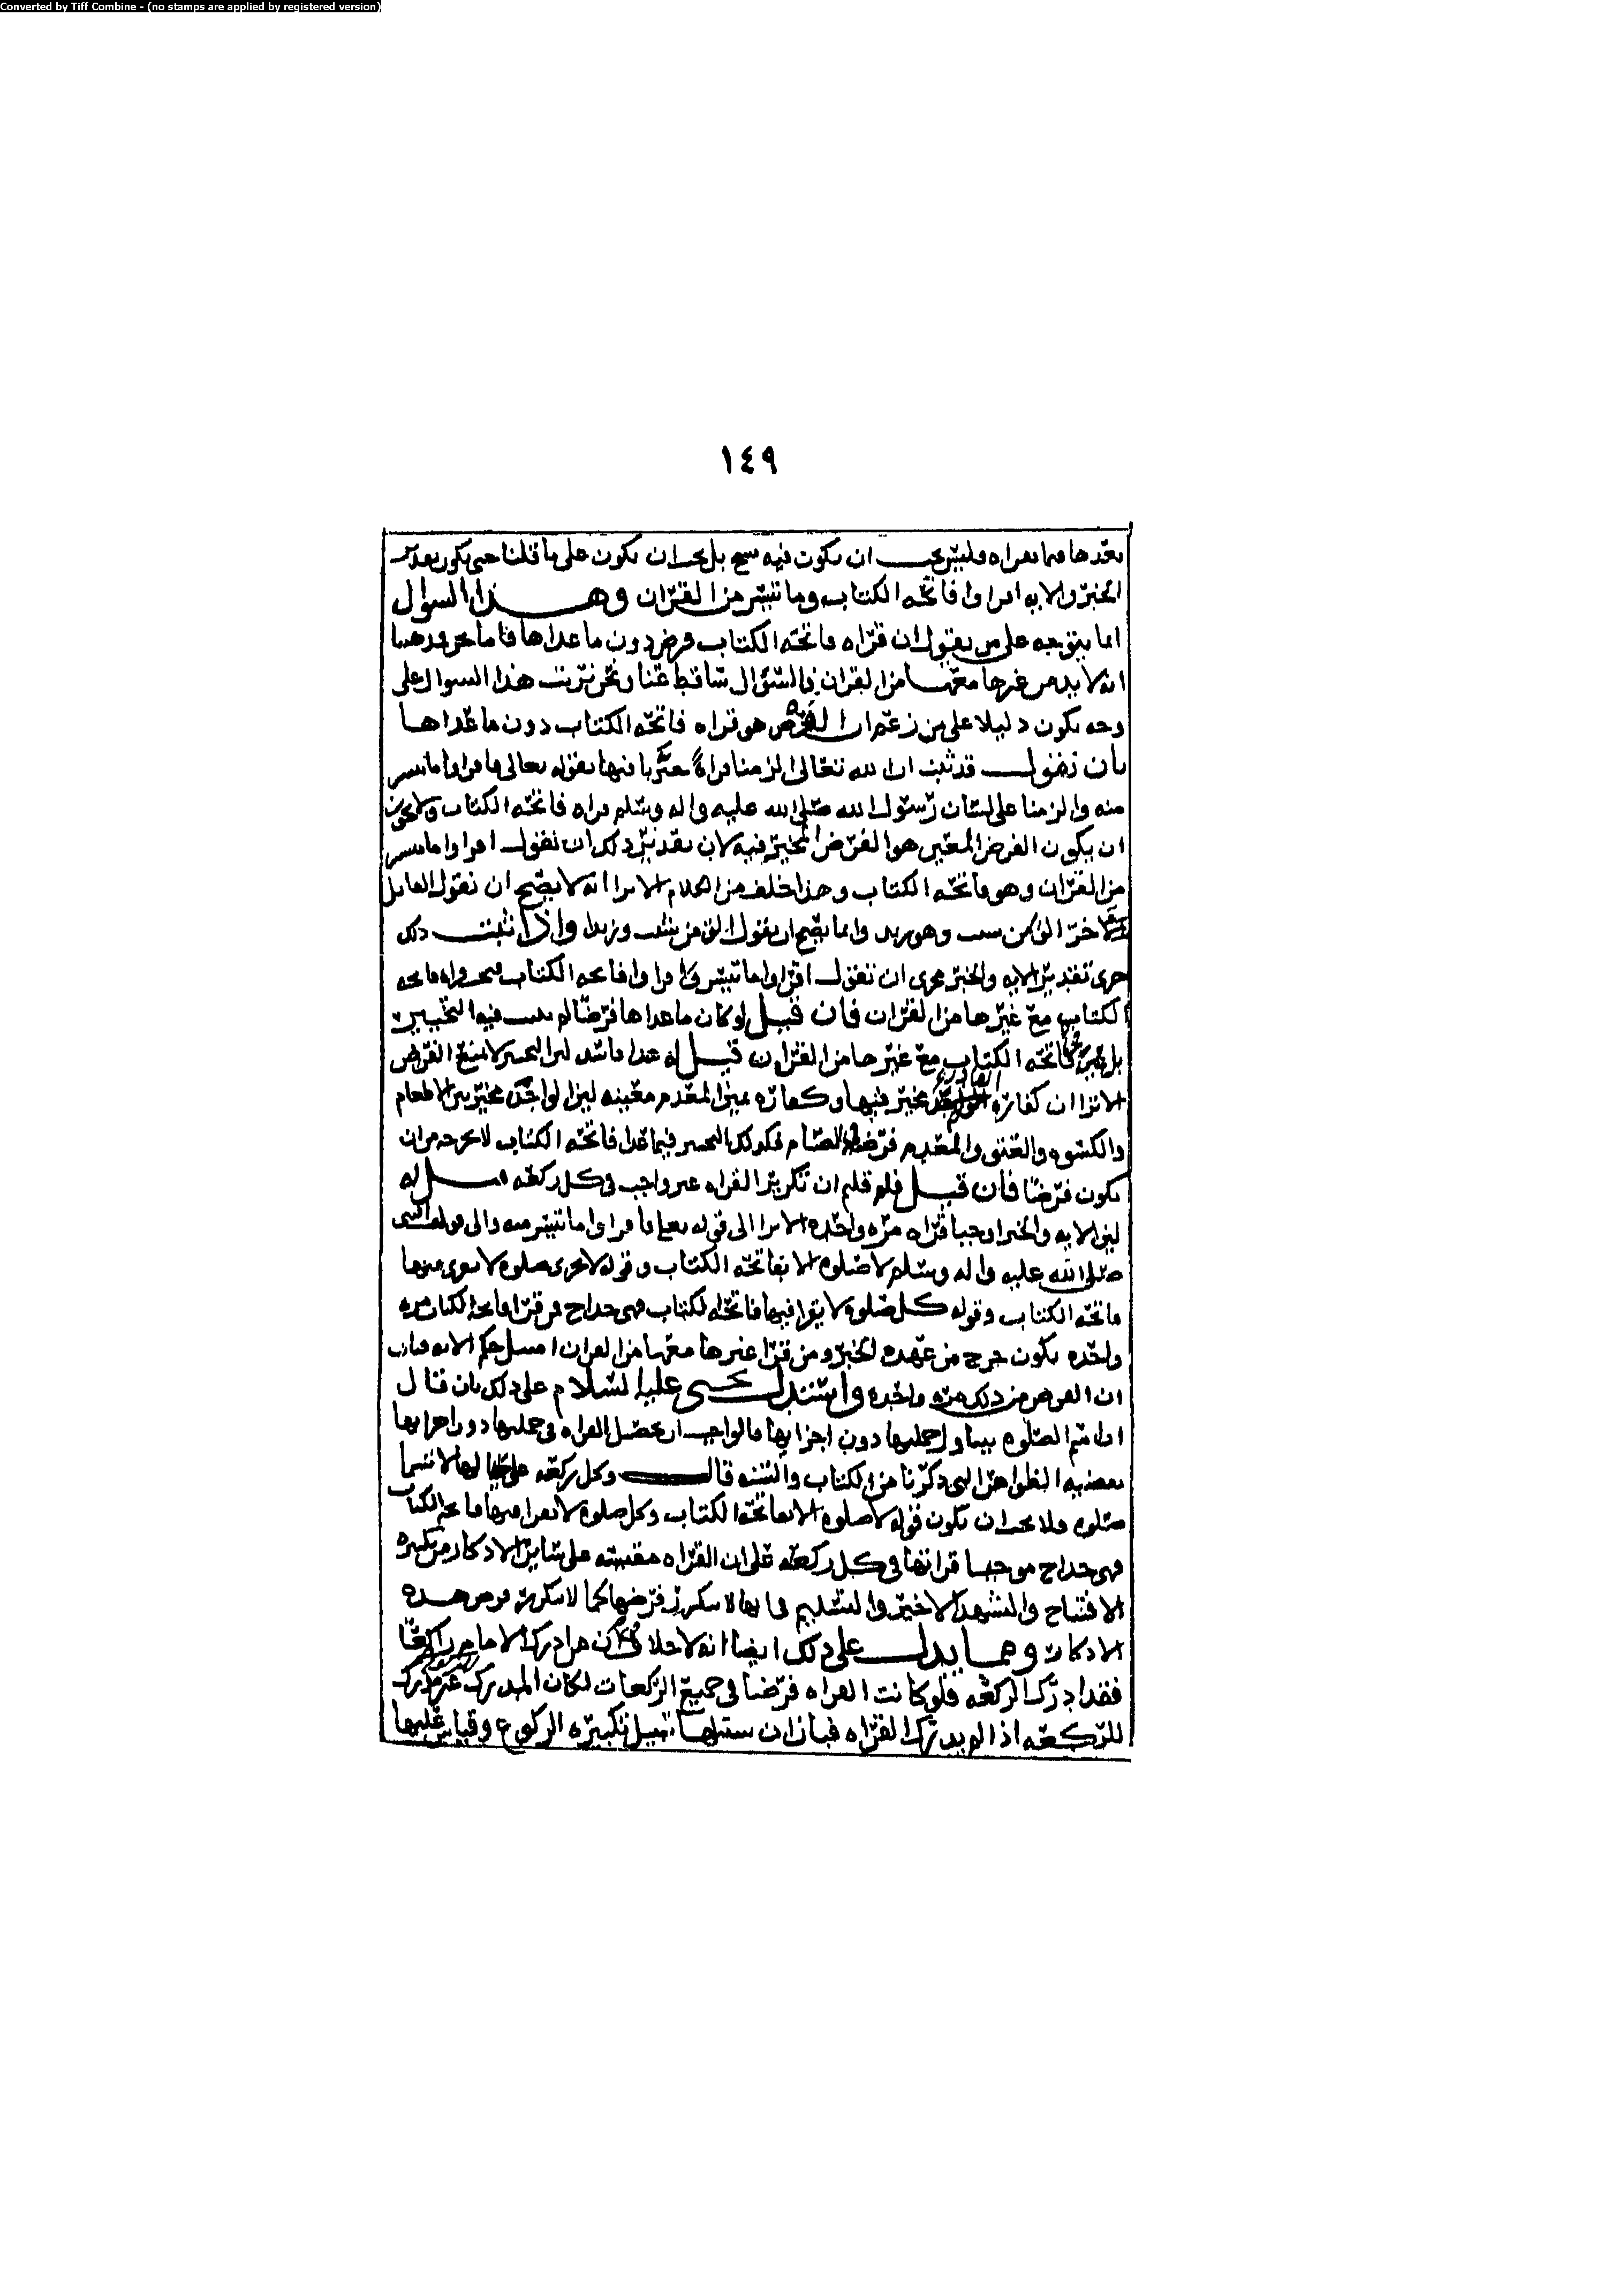 Converted by Tiff Combine - (no stamps are applied by registered version)
١٤٩
بعدها فما نقراه فليس يجب ان يكون فيه نسخ بل يجب ان يكون على ما قلنا حتى يكون تقدير
الخبر والايه اقراوا فاتحه الكتاب وما تيسر من القران وهذا السوال
انما يتوجه على من يقول ان قراه فاتحه الكتاب فرض دون ما عداها فاما نحن فمذهبنا
انه لا بد من غيرها معها من القران فالسؤال ساقط عنا ونحن نرتب هذا السوال على
وجه يكون دليلا على من زعم ان الفرض هو قراه فاتحه الكتاب دون ما عداها
بان نقول قد ثبت ان الله تعالى الزمنا قراه مخيرا فيها بقوله تعالى فاقراوا ما تيسر
منه والزمنا على لسان رسول الله صلى الله عليه واله وسلم قراه فاتحه الكتاب ولا يجوز
ان يكون الفرض المعين هو الفرض المخير فيه لان تقدير ذلك ان نقول اقراوا ما تيسر
من القران وهو فاتحه الكتاب وهذا خلف من الكلام الا ترا انه لا يصح ان نقول القايل
الق من شيت وهو زيد وانما يصح ان يقول الق من شيت وزيدا واذا ثبت ذلك
جرى تقدير الايه والخبر مجرى ان نقول اقراوا ما تيسر واقراوا فاتحه الكتاب فتجب قراه فاتحه
الكتاب مع غيرها من القران فان قيل لو كان ما عداها فرضا لم يثبت فيه التخيير
بل فاتحه الكتاب مع غيرها من القران قيل له هذا فاسد لان التخيير لا يمنع الفرض
الا ترا ان كفاره مخير فيها وكفاره يمين المعدم معينه لان الواجد مخير بين الاطعام
والكسوه والعتق والمعدم فرضه الصيام فكذلك التخيير فيما عدا فاتحه الكتاب لا يخرجه من ان
يكون فرضا فان قيل فلم قلتم ان تكرير القراه غير واجب في كل ركعه قيل له
لان الايه والخبر اوجبا قراه مره واحده الا ترا الى قوله تعالى فاقراوا ما تيسر منه والى قول النبي
صلى الله عليه واله وسلم لا صلوه الا بفاتحه الكتاب وقوله لا تجزى صلوه لا يقرى فيها
فاتحه الكتاب وقوله كل صلوه لا يقرا فيها فاتحه الكتاب فهى خداج فمن قرا فاتحه الكتاب مره
واحده يكون خرج من عهده الخبر ومن قرا غيرها معها من القران امتثل حكم الايه فبان
ان الفرض من ذلك مره واحده واستدل يحيى عليه السلام على ذلك بان قال
ان اسم الصلوه يتناول جملتها دون اجزايها فالواجب ان تحصل القراه في جملتها دون اجزايها
بقضيه الظواهر التي ذكرنا من الكتاب والسنه قال وكل ركعه على حيالها لا تسما
صلوه فلا يجب ان يكون قوله لا صلوه الا بفاتحه الكتاب وكل صلوه لا يقرا فيها فاتحه الكتاب
فهى خداج موجبا قراتها في كل ركعه على ان القراه مقيسه على ساير الاذكار من تكبيره
الافتتاح والتشهد الاخير والتسليم في انها لا يتكرر فرضها كما لا يتكرر فرض هذه
الاذكار ومما يدل على ذلك ايضا انه لا خلاف ان من ادرك الامام راكعا
فقد ادرك الركعه فلو كانت القراه فرضا في جميع الركعات لكان المدرك غير مدرك
للركعه اذا لم يدرك القراه فبان ان سبيلها سبيل تكبيره الركوع وقياس عليها